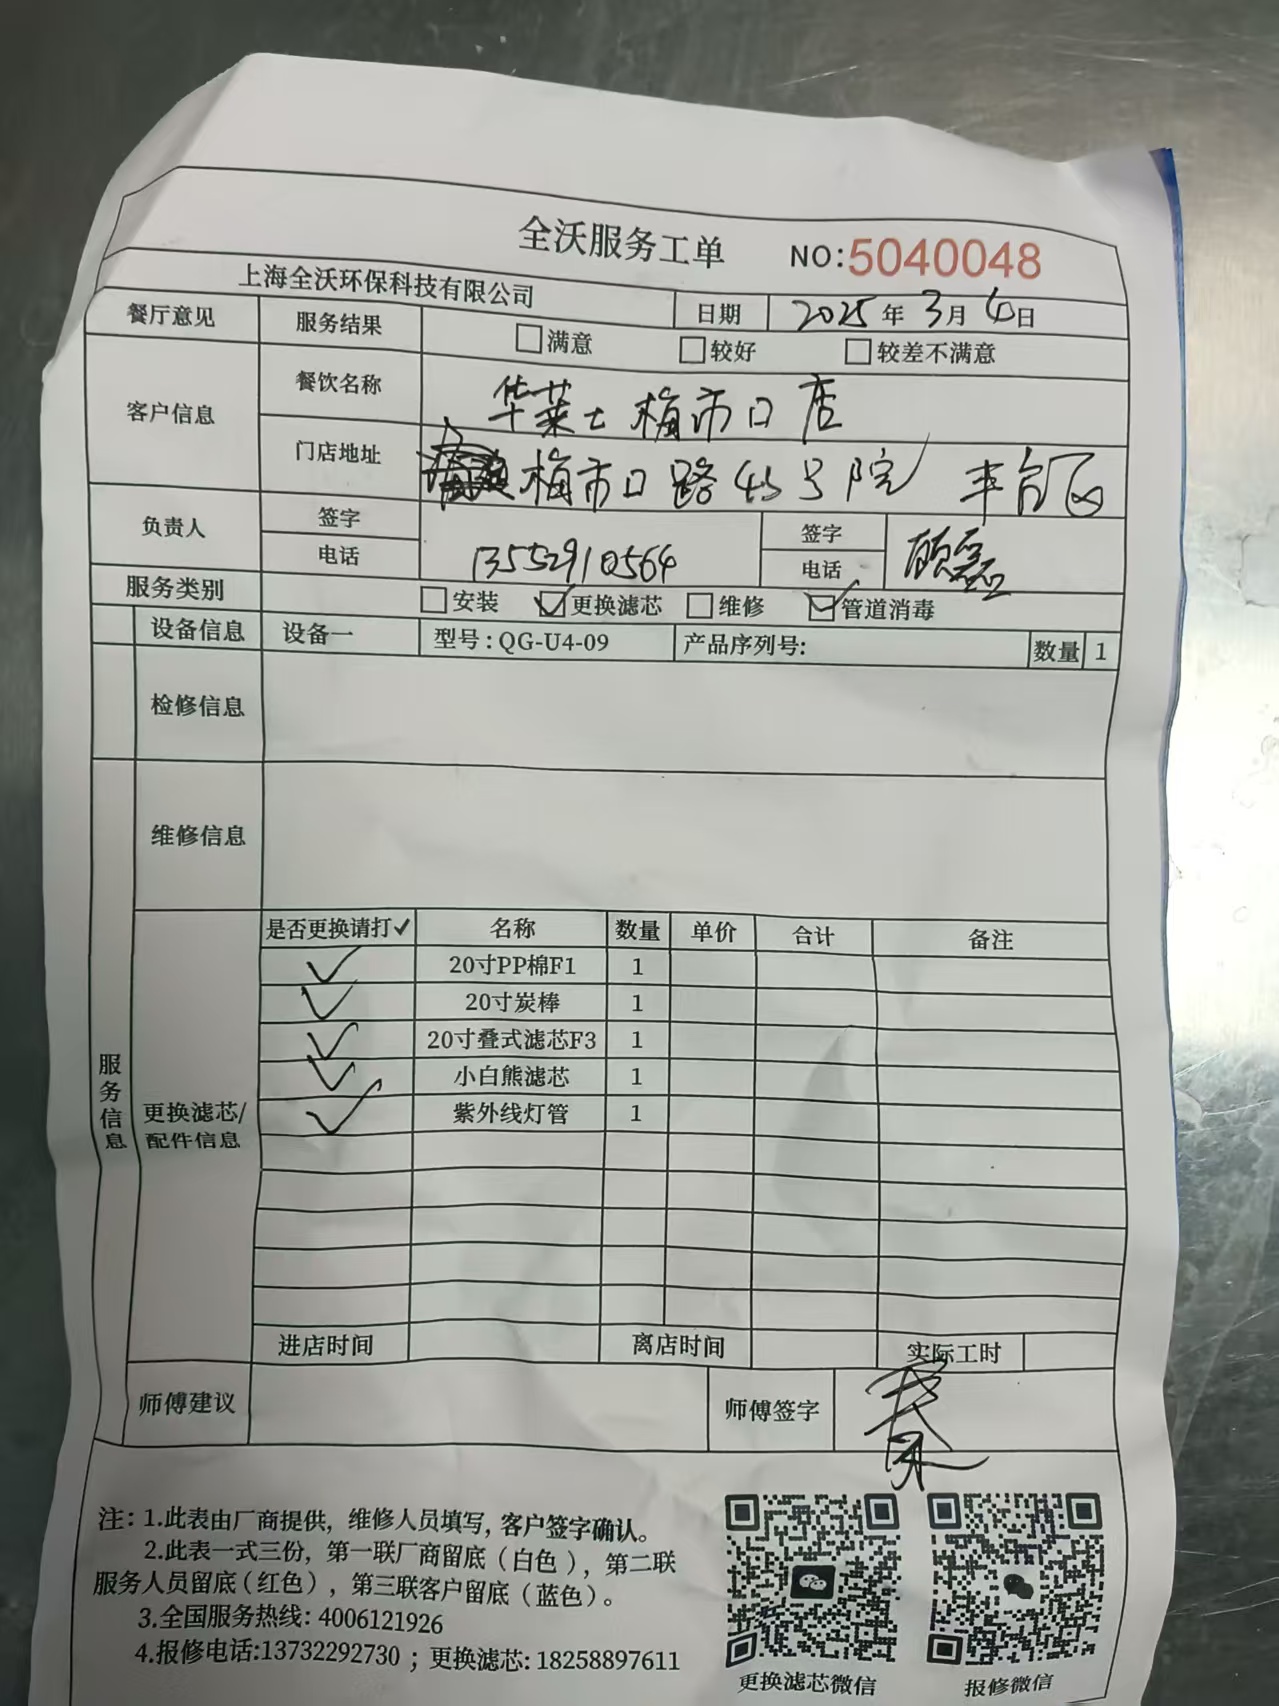 全沃服务工单 NO:5040048
上海全沃环保科技有限公司 日期 2025年3月6日
餐厅意见 服务结果 满意 较好 较差不满意
客户信息 餐饮名称 华莱士梅市口店
门店地址 梅市口路45号院 丰台区
负责人 签字 签字
电话 13552910564 电话 顾磊
服务类别 安装 ✓更换滤芯 维修 ✓管道消毒
设备信息 设备一 型号:QG-U4-09 产品序列号: 数量 1
检修信息
维修信息
服务信息
更换滤芯/配件信息
是否更换请打✓ 名称 数量 单价 合计 备注
✓ 20寸PP棉F1 1
✓ 20寸炭棒 1
✓ 20寸叠式滤芯F3 1
✓ 小白熊滤芯 1
✓ 紫外线灯管 1
进店时间 离店时间 实际工时
师傅建议 师傅签字
注: 1.此表由厂商提供, 维修人员填写, 客户签字确认。
2.此表一式三份, 第一联厂商留底(白色), 第二联
服务人员留底(红色), 第三联客户留底(蓝色)。
3.全国服务热线: 4006121926
4.报修电话:13732292730 ; 更换滤芯: 18258897611
更换滤芯微信 报修微信